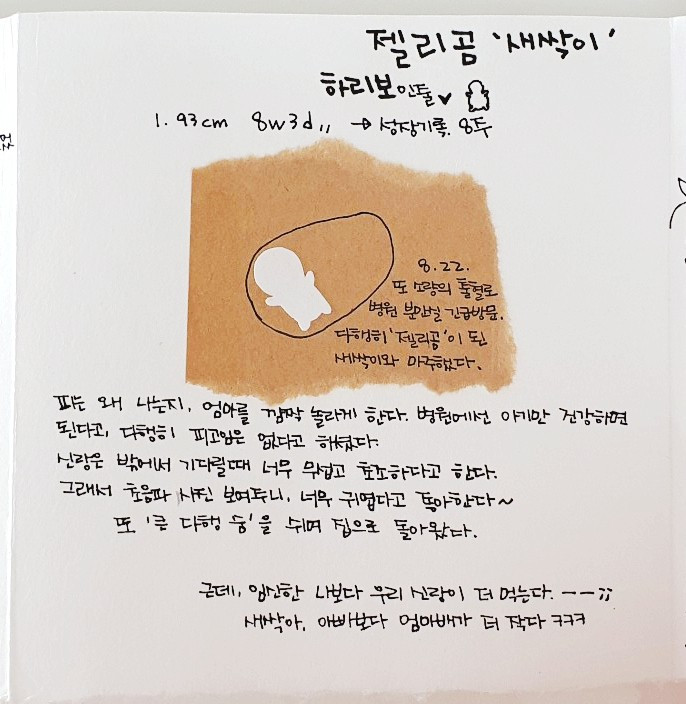 젤리곰 '새싹이'
하리보인듯
1.93cm 8w3d,, → 성장기록. 8주
8.22.
또 소량의 출혈로
병원 분만실 긴급방문.
다행히 '젤리곰'이 된
새싹이와 마주했다.
피는 왜 나는지, 엄마를 깜짝 놀라게 한다. 병원에선 아기만 건강하면
된다고, 다행히 피고임은 없다고 하셨다.
신랑은 밖에서 기다릴때 너무 무섭고 초조하다고 한다.
그래서 초음파 사진 보여주니, 너무 귀엽다고 좋아한다~
또 '큰 다행 숨'을 쉬며 집으로 돌아왔다.
근데, 임신한 나보다 우리 신랑이 더 먹는다. ーー;;
새싹아, 아빠보다 엄마배가 더 작다 ㅋㅋㅋ